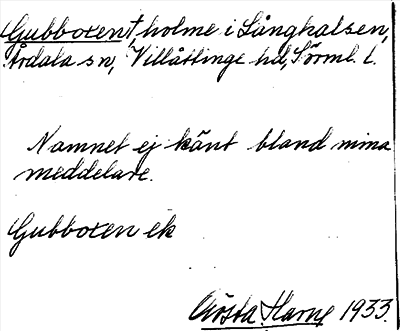 Gubboxen†, holme i Långhalsen,
Årdala sn, Villåttinge hd, Sörml. l.
Namnet ej känt bland mina
meddelare.
Gubboxen ek
Gösta Harne 1933.